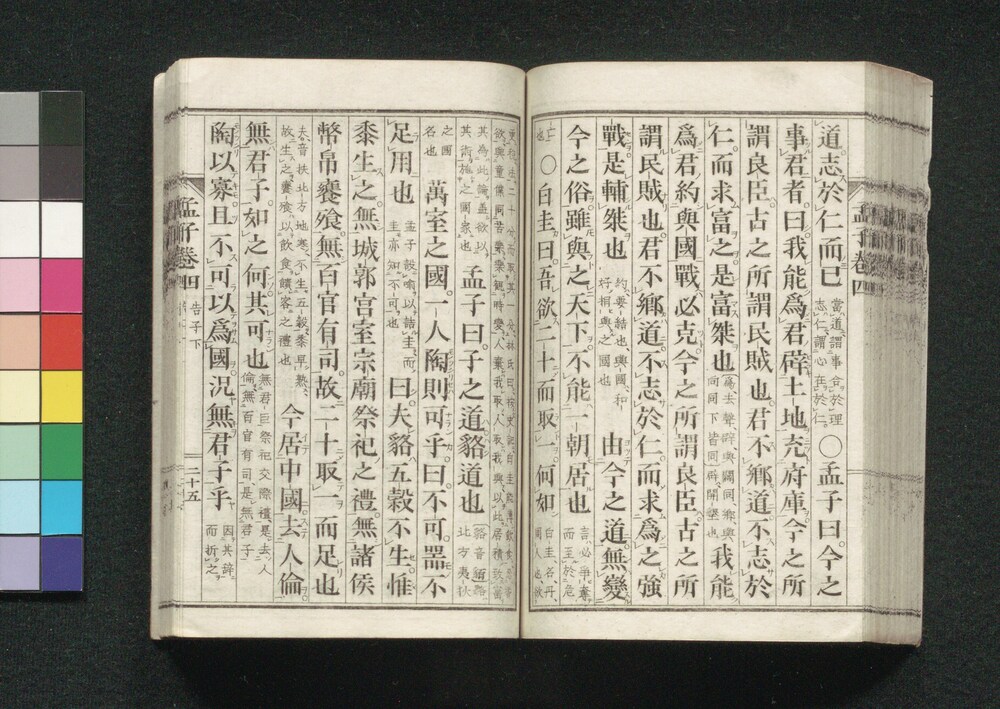 道志於仁而已 當道謂事合於理志仁謂心在於仁 〇孟子曰今之
事君者曰我能爲君辟土地充府庫今之所
謂良臣古之所謂民賊也君不鄕道不志於
仁而求富之是富桀也 爲去聲辟與闢同鄕與向同下皆同辟開墾也 我能
爲君約與國戰必克今之所謂良臣古之所
謂民賊也君不鄕道不志於仁而求爲之強
戰是輔桀也 約要結也與國和好相與之國也 由今之道無變
今之俗雖與之天下不能一朝居也 言必爭奪而至於危
亡也 〇白圭曰吾欲二十而取一何如 白圭名丹周人也欲
更稅法二十分而取其一分林氏曰按史記白圭能薄飮食
欲與童僕同苦樂樂觀時變人棄我取人取我與以此居積致富
其爲此論蓋欲以其術施之國家也 孟子曰子之道貉道也 貉音陌貉北方夷狄
之國名也 萬室之國一人陶則可乎曰不可器不
足用也 孟子設喩以詰圭而圭亦知不可也 曰夫貉五穀不生惟
黍生之無城郭宮室宗廟祭祀之禮無諸侯
幣帛饔飧無百官有司故二十取一而足也
夫音扶北方地寒不生五穀黍早熟故生之饔飧以飮食饋客之禮也 今居中國去人倫
無君子如之何其可也 無君臣祭祀交際禮是去人倫無百官有司是無君子
陶以寡且不可以爲國況無君子乎 因其辭而折之
孟子卷四
孟子卷四
告子下
二十五